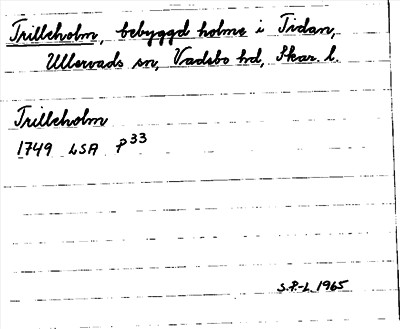 Trilleholm, bebyggd holme i Tidan,
Ullervads sn, Vadsbo hd, Skar. l.
Trilleholm
1749 LSA P33
S.P.-L. 1965